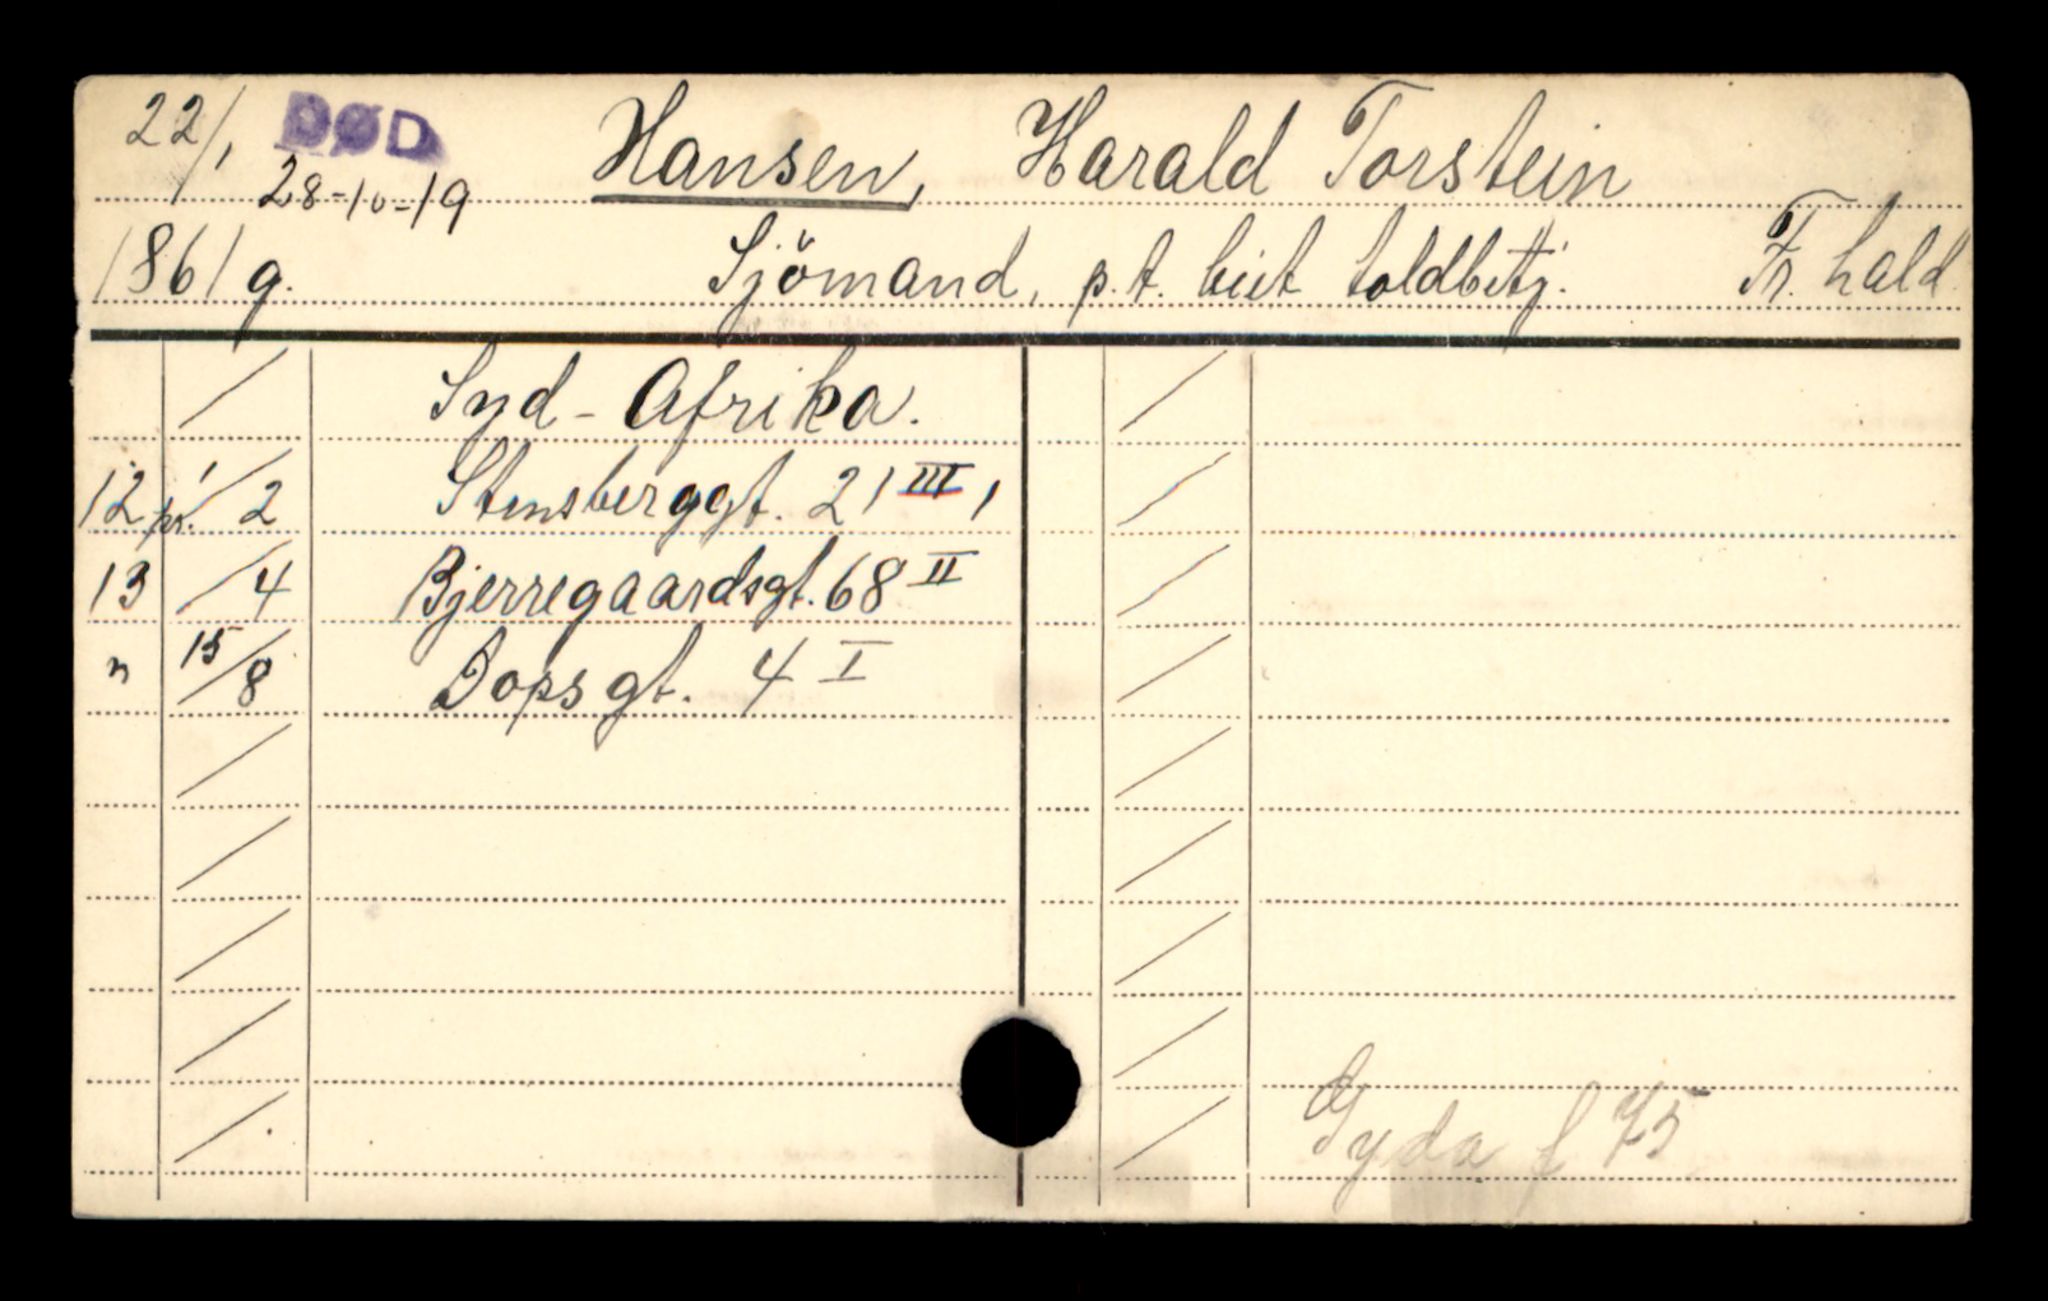 22/1 DØD Hansen, Harald Torstein
28-10-19
1861 g. Sjömand, p.t. toldbetj. Fr. hald
Syd-Afrika.
12 pr. 1/2 Stensberggt. 21 III,
13 /4 Bjerregaardsgt. 68 II
" 15/8 Dopsgt. 4 I
Gyda f 75